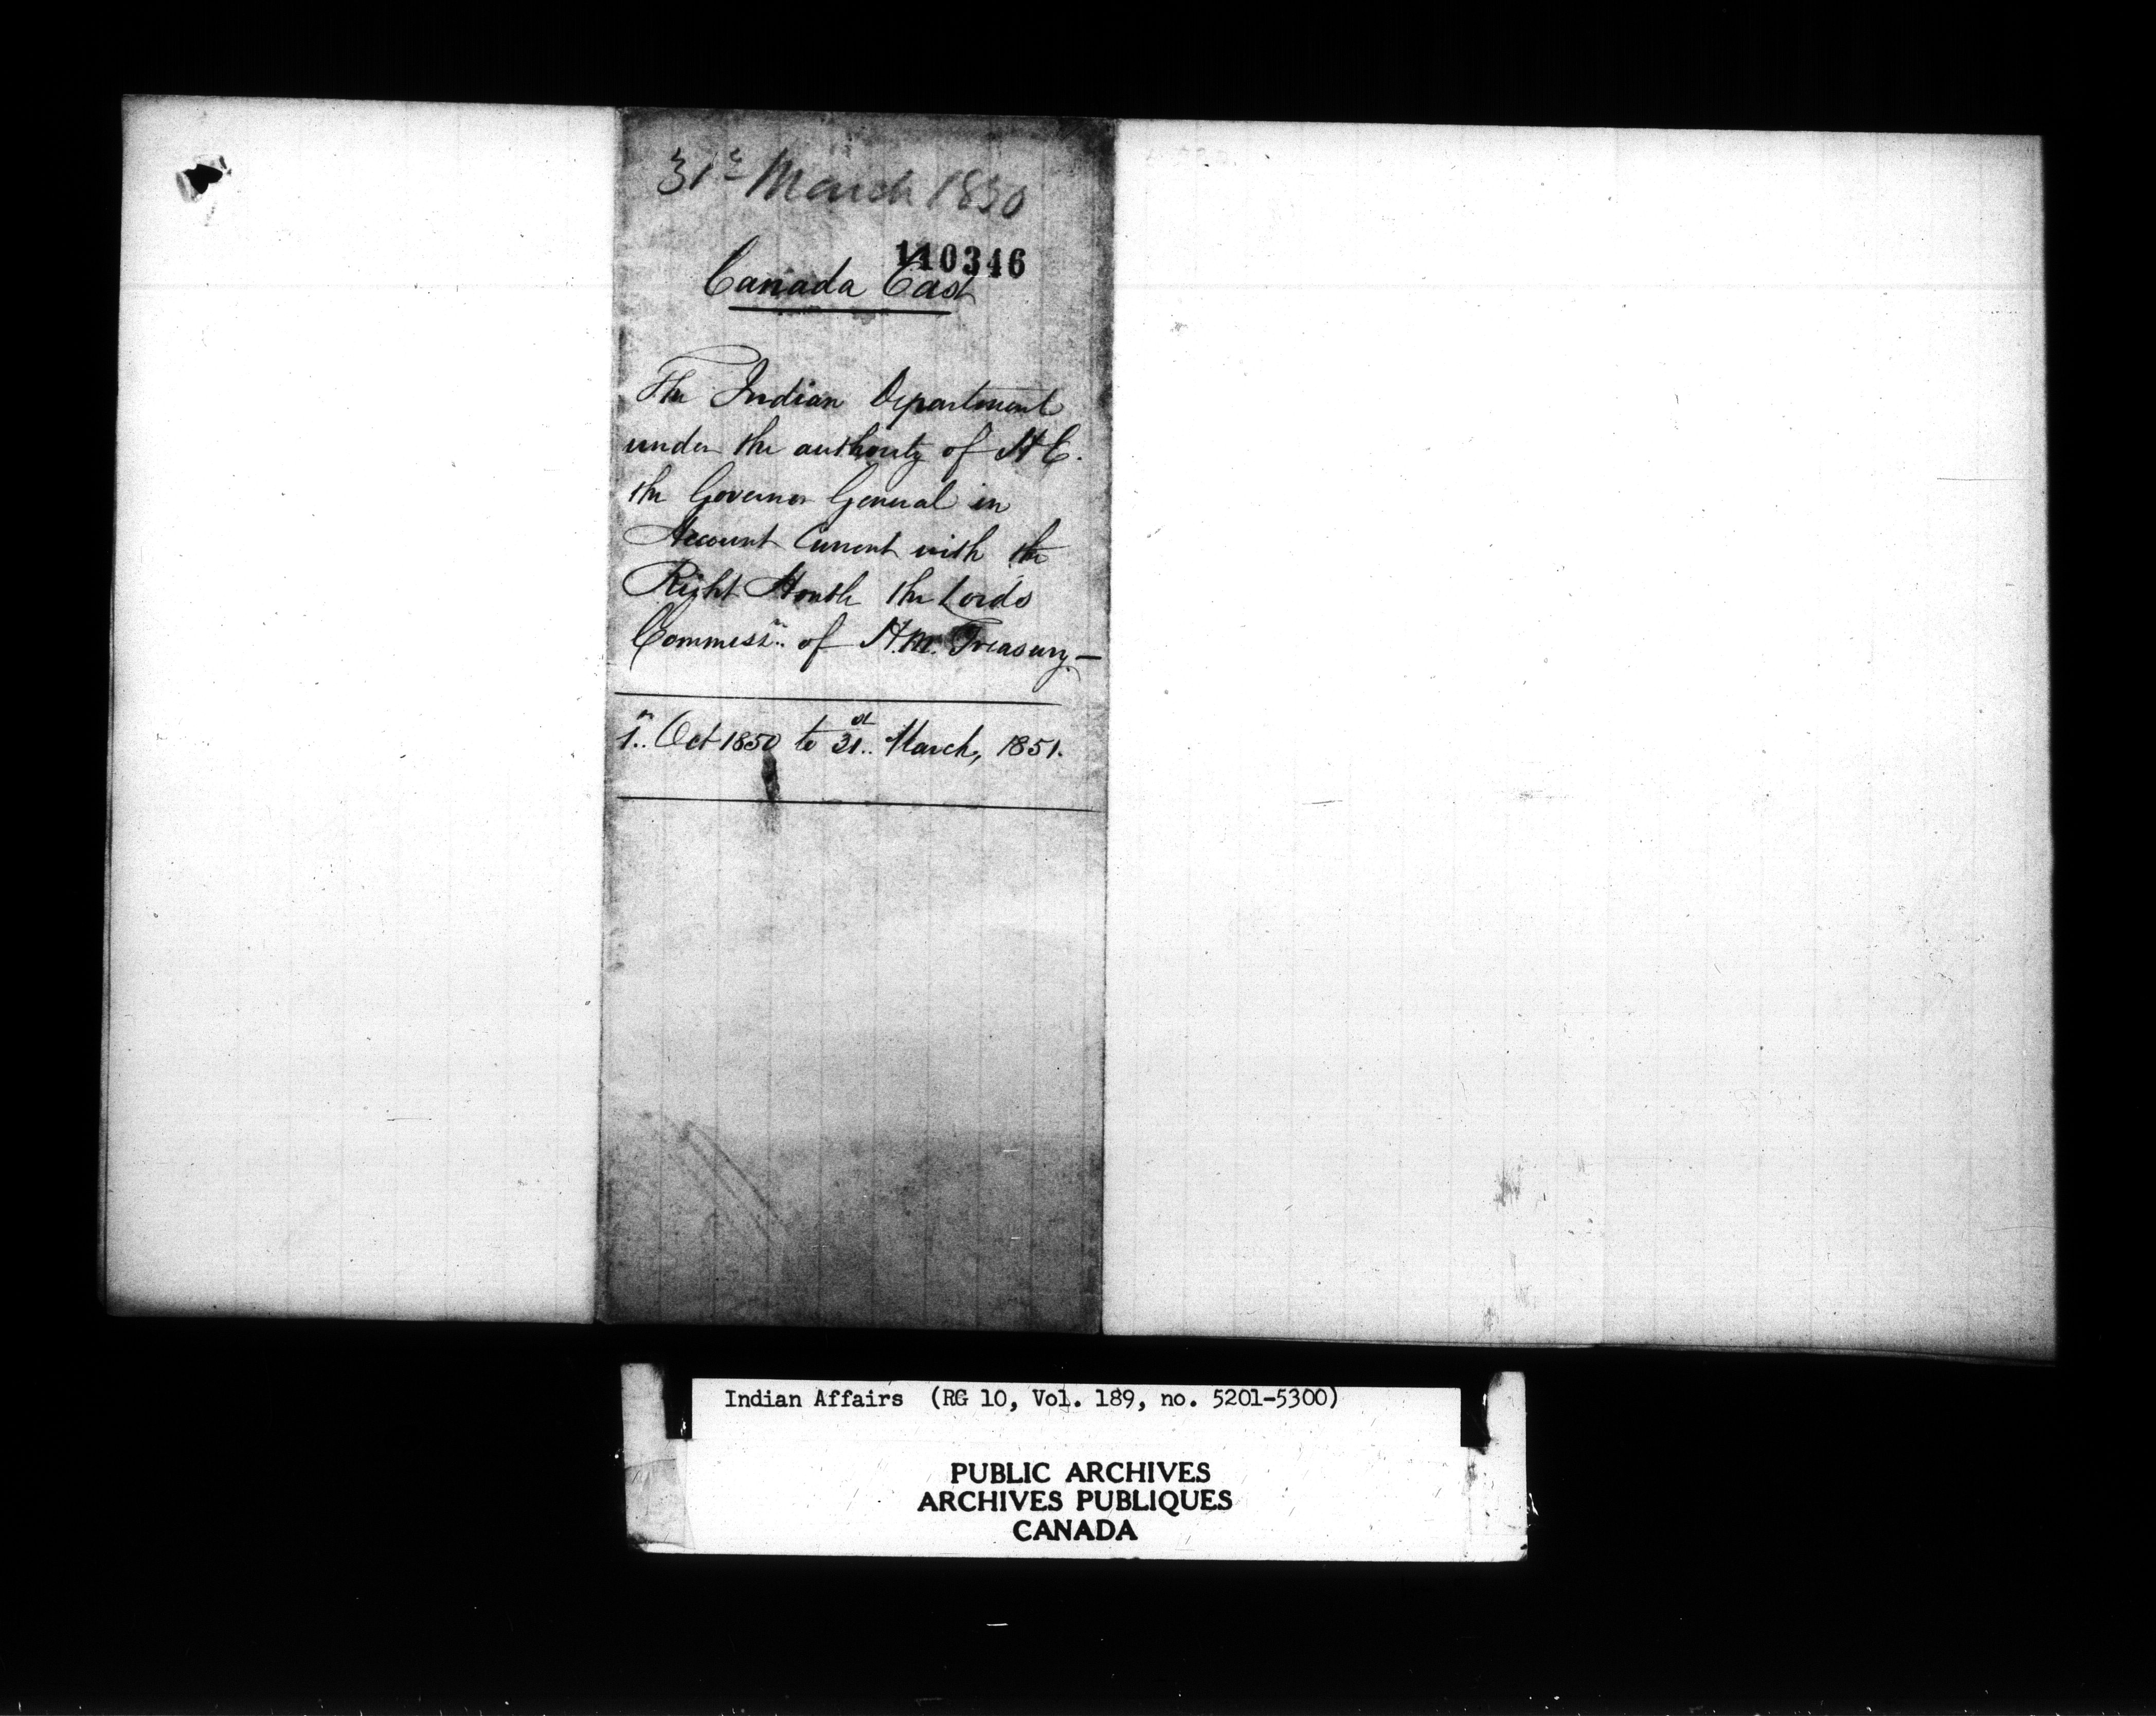 31st March 1850
110346
Canada East
The Indian Department
under the authority of H.E.
the Governor General in
Account Current with the
Right Honble the Lords
Commissrs of H.M. Treasury—
1st Oct 1850 to 31st March, 1851.
Indian Affairs (RG 10, Vol. 189, no. 5201-5300)
PUBLIC ARCHIVES
ARCHIVES PUBLIQUES
CANADA